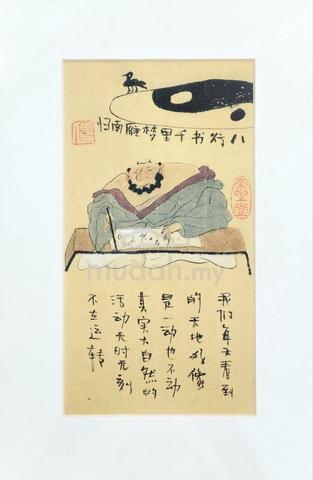 八行书千里梦雁南归
mudah.my
我们每天看到
的天地好像
是一动也不动
其实大自然的
活动无时无刻
不在运转